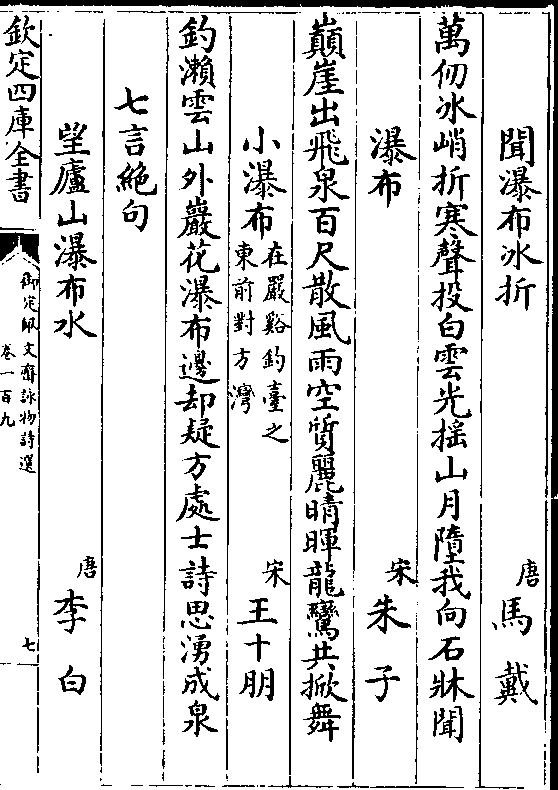 聞瀑布氷折　唐馬戴
萬仞氷峭折寒聲投白雲光揺山月墮我向石牀聞
瀑布　宋朱子
巔崖出飛泉百尺散風雨空質麗晴暉龍鸞共掀舞
小瀑布　在嚴谿釣臺之東前對方灣　宋王十朋
釣瀨雲山外巖花瀑布邊却疑方處士詩思湧成泉
七言絶句
望廬山瀑布水　唐李白
欽定四庫全書
御定佩文齋詠物詩選
卷一百九
七